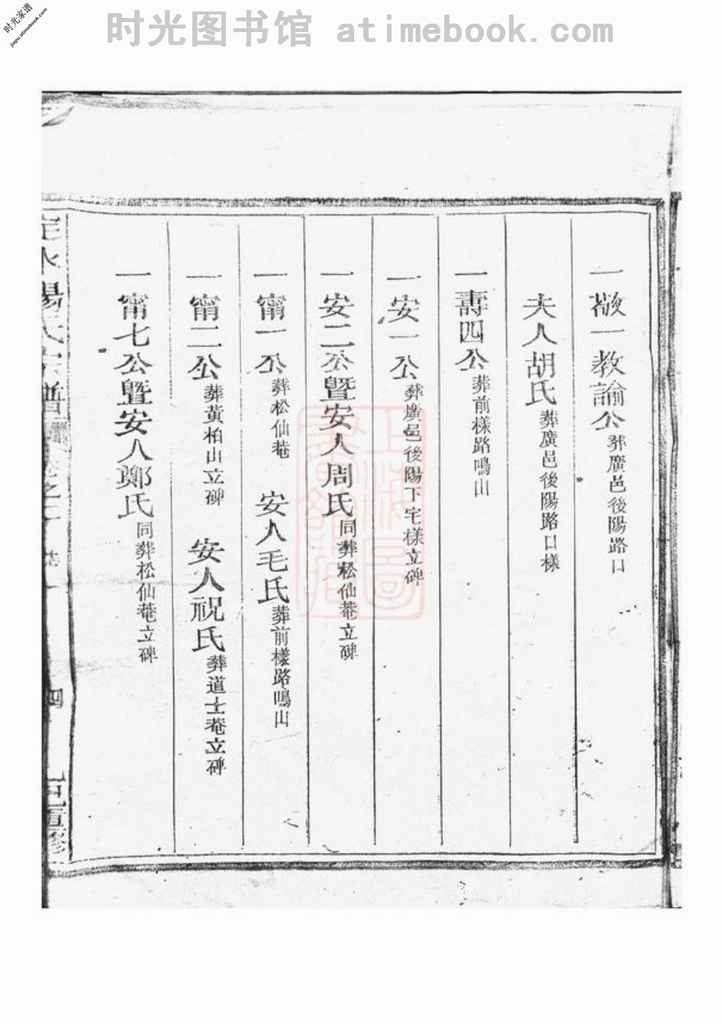 时光图书馆 atimebook.com
时光家谱
一敬一教諭公葬廣邑後陽路口
夫人胡氏葬廣邑後陽路口樣
一壽四公葬前樣路鳴山
一安一公葬廣邑後陽下宅樣立碑
一安二公暨安人周氏同葬松仙菴立碑
一甯一公葬松仙菴 安人毛氏葬前樣路鳴山
一甯二公葬黃柏山立碑 安人祝氏葬道士菴立碑
一甯七公暨安人鄭氏同葬松仙菴立碑
水楊氏宗譜 卷之 四